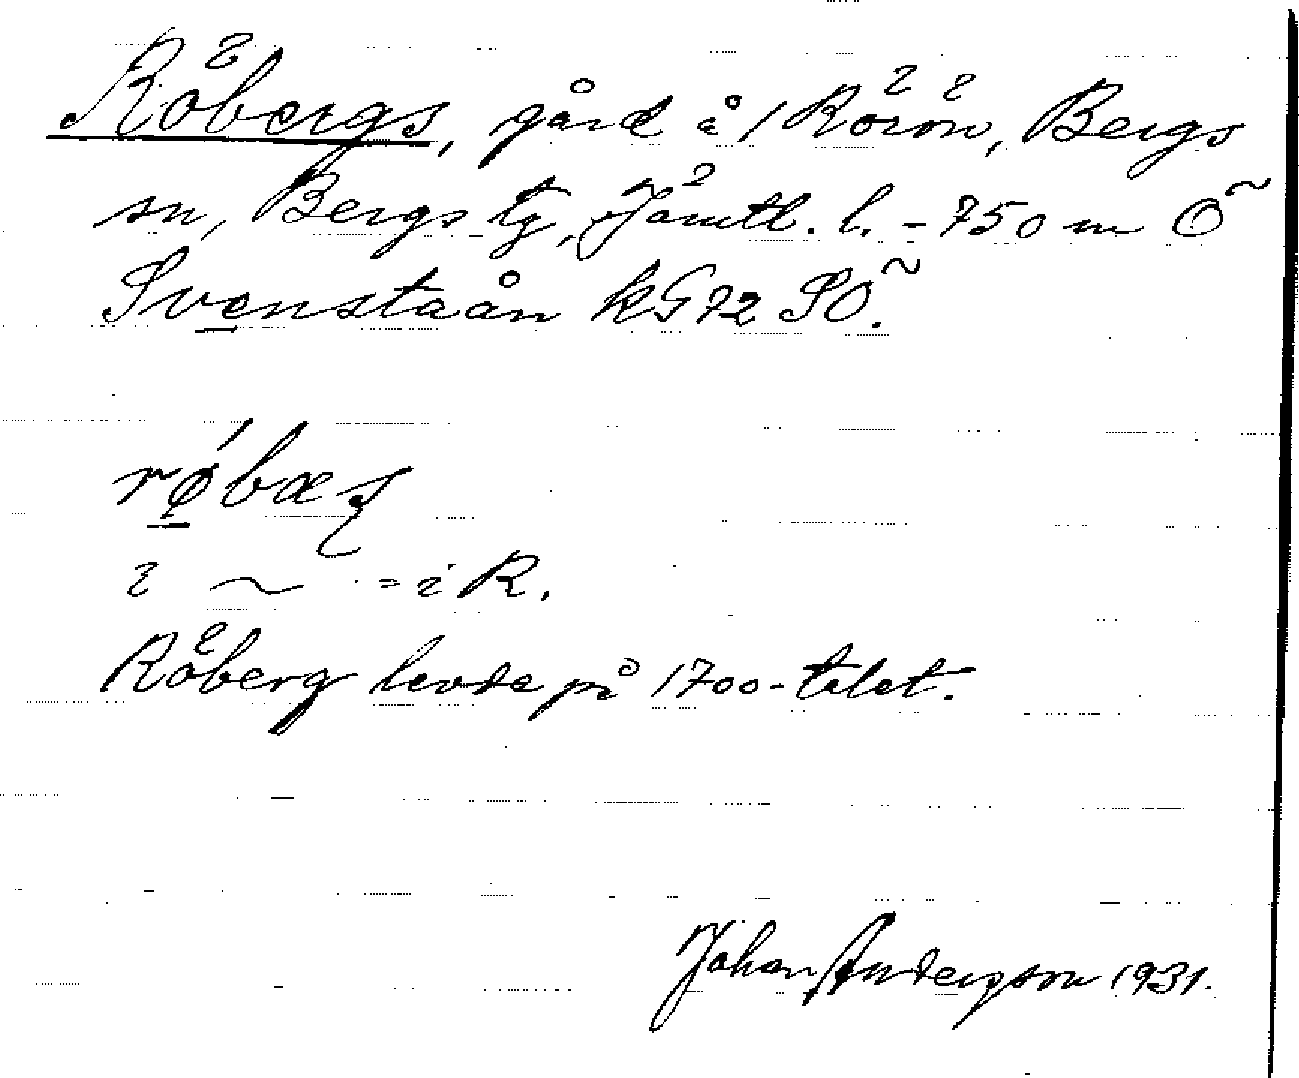 Röbergs, gård å / Rörön, Bergs
sn, Bergs tg, Jämtl. l. - 750 m Ö
Svenstaån k G 72 SÖ.
røbæs
i ~ - = i R.
Röberg levde på 1700-talet.
Johan Anderson 1931.